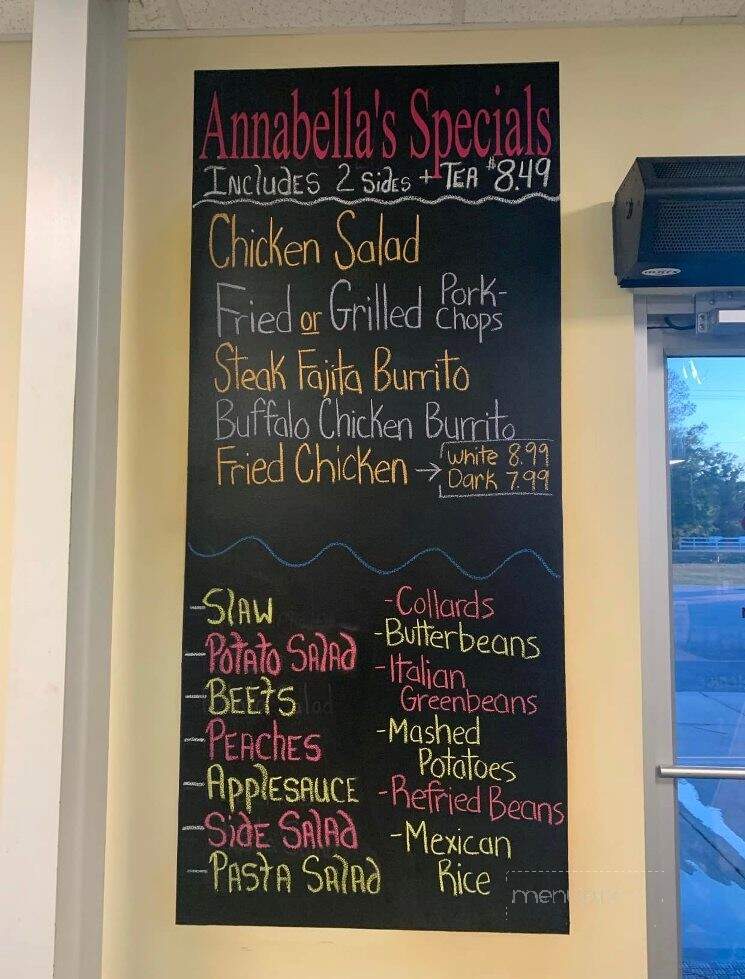 Annabella's Specials
Includes 2 sides + Tea $8.49
Chicken Salad
Fried or Grilled Pork-
Chops
Steak Fajita Burrito
Buffalo Chicken Burrito
Fried Chicken → White 8.99
Dark 7.99
- Slaw
- Potato Salad
- Beets
- Peaches
- Applesauce
- Side Salad
- Pasta Salad
- Collards
- Butterbeans
- Italian
Greenbeans
- Mashed
Potatoes
- Refried Beans
- Mexican
Rice